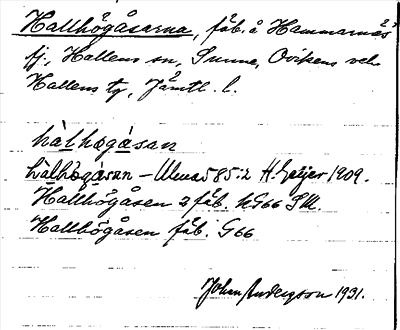 Hallhögåsarna, fäb. å Hammarnäs
fj., Hallens sn, Sunne, Ovikens och
Hallens tg, Jämtl. l.
hàlhøgåsan
hàlhøgåsan – Ulma 585:2 H. Geijer 1909.
Hallhögåsen 2 fäb. kG66 SM.
Hallhögåsen fäb. G66
Johan Andersson 1931.